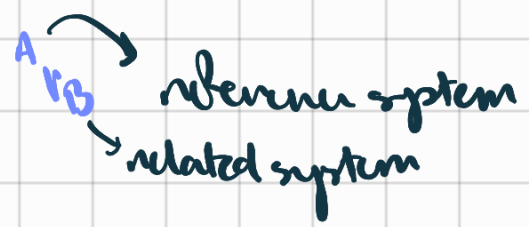 A r B
reference system
related system